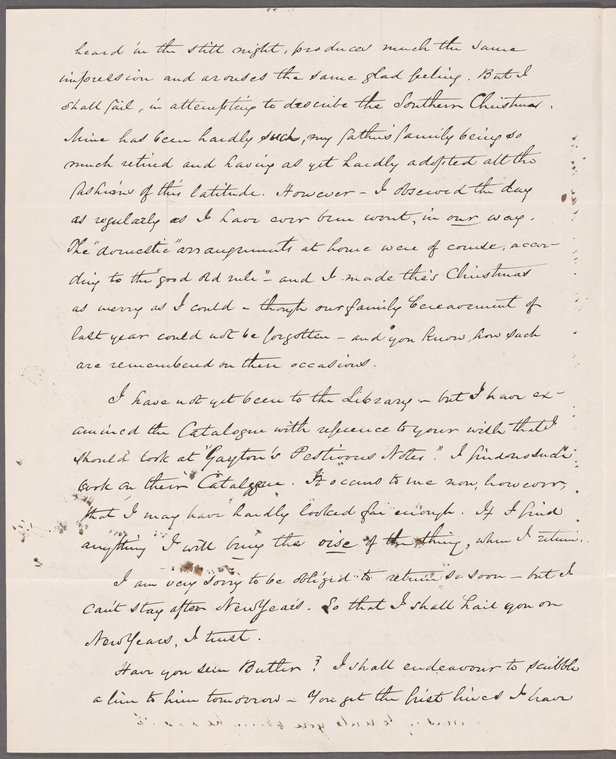 heard in the still night, produces much the same
impression and arouses the same glad feeling. But I
shall fail, in attempting to describe the Southern Christmas.
Mine has been hardly such, my father's family being so
much retired and having as yet hardly adopted all the
fashions of this latitude. However – I observed the day
as regularly as I have ever been wont, in our way.
The "domestic" arrangements at home were of course, accor-
ding to the "good old rule" – and I made this Christmas
as merry as I could – though our family bereavement of
last year could not be forgotten – and you know, how such
are remembered on these occasions.
I have not yet been to the Library – but I have ex-
amined the Catalogue with reference to your wish that I
should look at "Gayton's Festivous Notes". I find no such
work on their Catalogue. It occurs to me now, however,
that I may have hardly looked far enough. If I find
anything I will bring the of the thing, when I return.
I am very sorry to be obliged to return so soon – but I
can't stay after New Years. So that I shall hail you on
New Years, I trust.
Have you seen Butler? I shall endeavour to scribble
a line to him tomorrow – You get the first lines I have